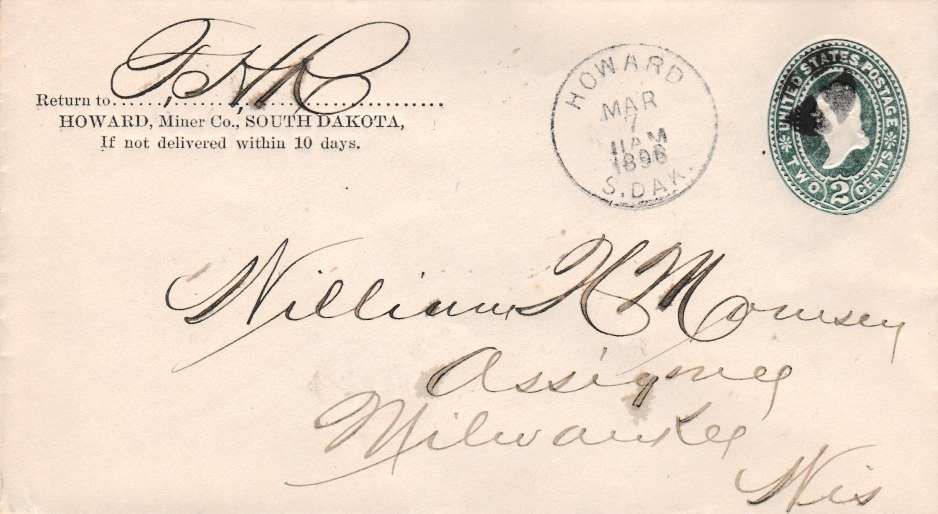 Return to
HOWARD, Miner Co., SOUTH DAKOTA,
If not delivered within 10 days.
HOWARD
MAR
7
11 AM
1896
S. DAK.
UNITED STATES POSTAGE
TWO 2 CENTS
William H Momsen
Assignee
Milwaukee
Wis